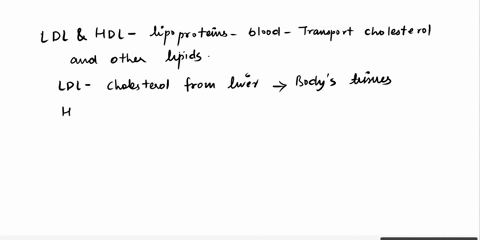 LDL & HDL - lipoproteins - blood - Transport cholesterol
and other lipids.
LDL - cholesterol from liver → Body's tissues
H